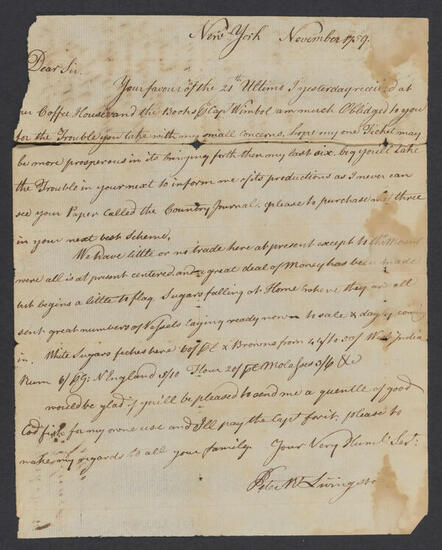 New York November 1759.
Dear Sir.
Your favour of the 21th Ultimo I yesterday received at
our Coffee House and the Books Capt Wimbol am much Oblidged to you
for the Trouble you take with my small concerns, hope my one Ticket may
be more prosperous in its bringing forth then my last six. beg you'll take
the Trouble in your next to inform me of its productions as I never can
see your Paper called the Country Journal. please to purchase me three
in your next best Scheme.
We have little or no trade here at present except to the
were all is at present centered and a great deal of Money has been made
but begins a little to flag Sugars falling at Home where they are all
sent. great numbers of Vessels laying ready now to sale & dayly coming
in. White Sugars fetches here 60/ & Browns from to 50/ West India
Rum N England Flour 20/ Molasses &c
would be glad if you'll be pleased to send me a quentle of good
Cod fish for my owne use and I'll pay the Capt for it. please to
make my regards to all your family. Your Very Humb Ser:
Peter Livingston